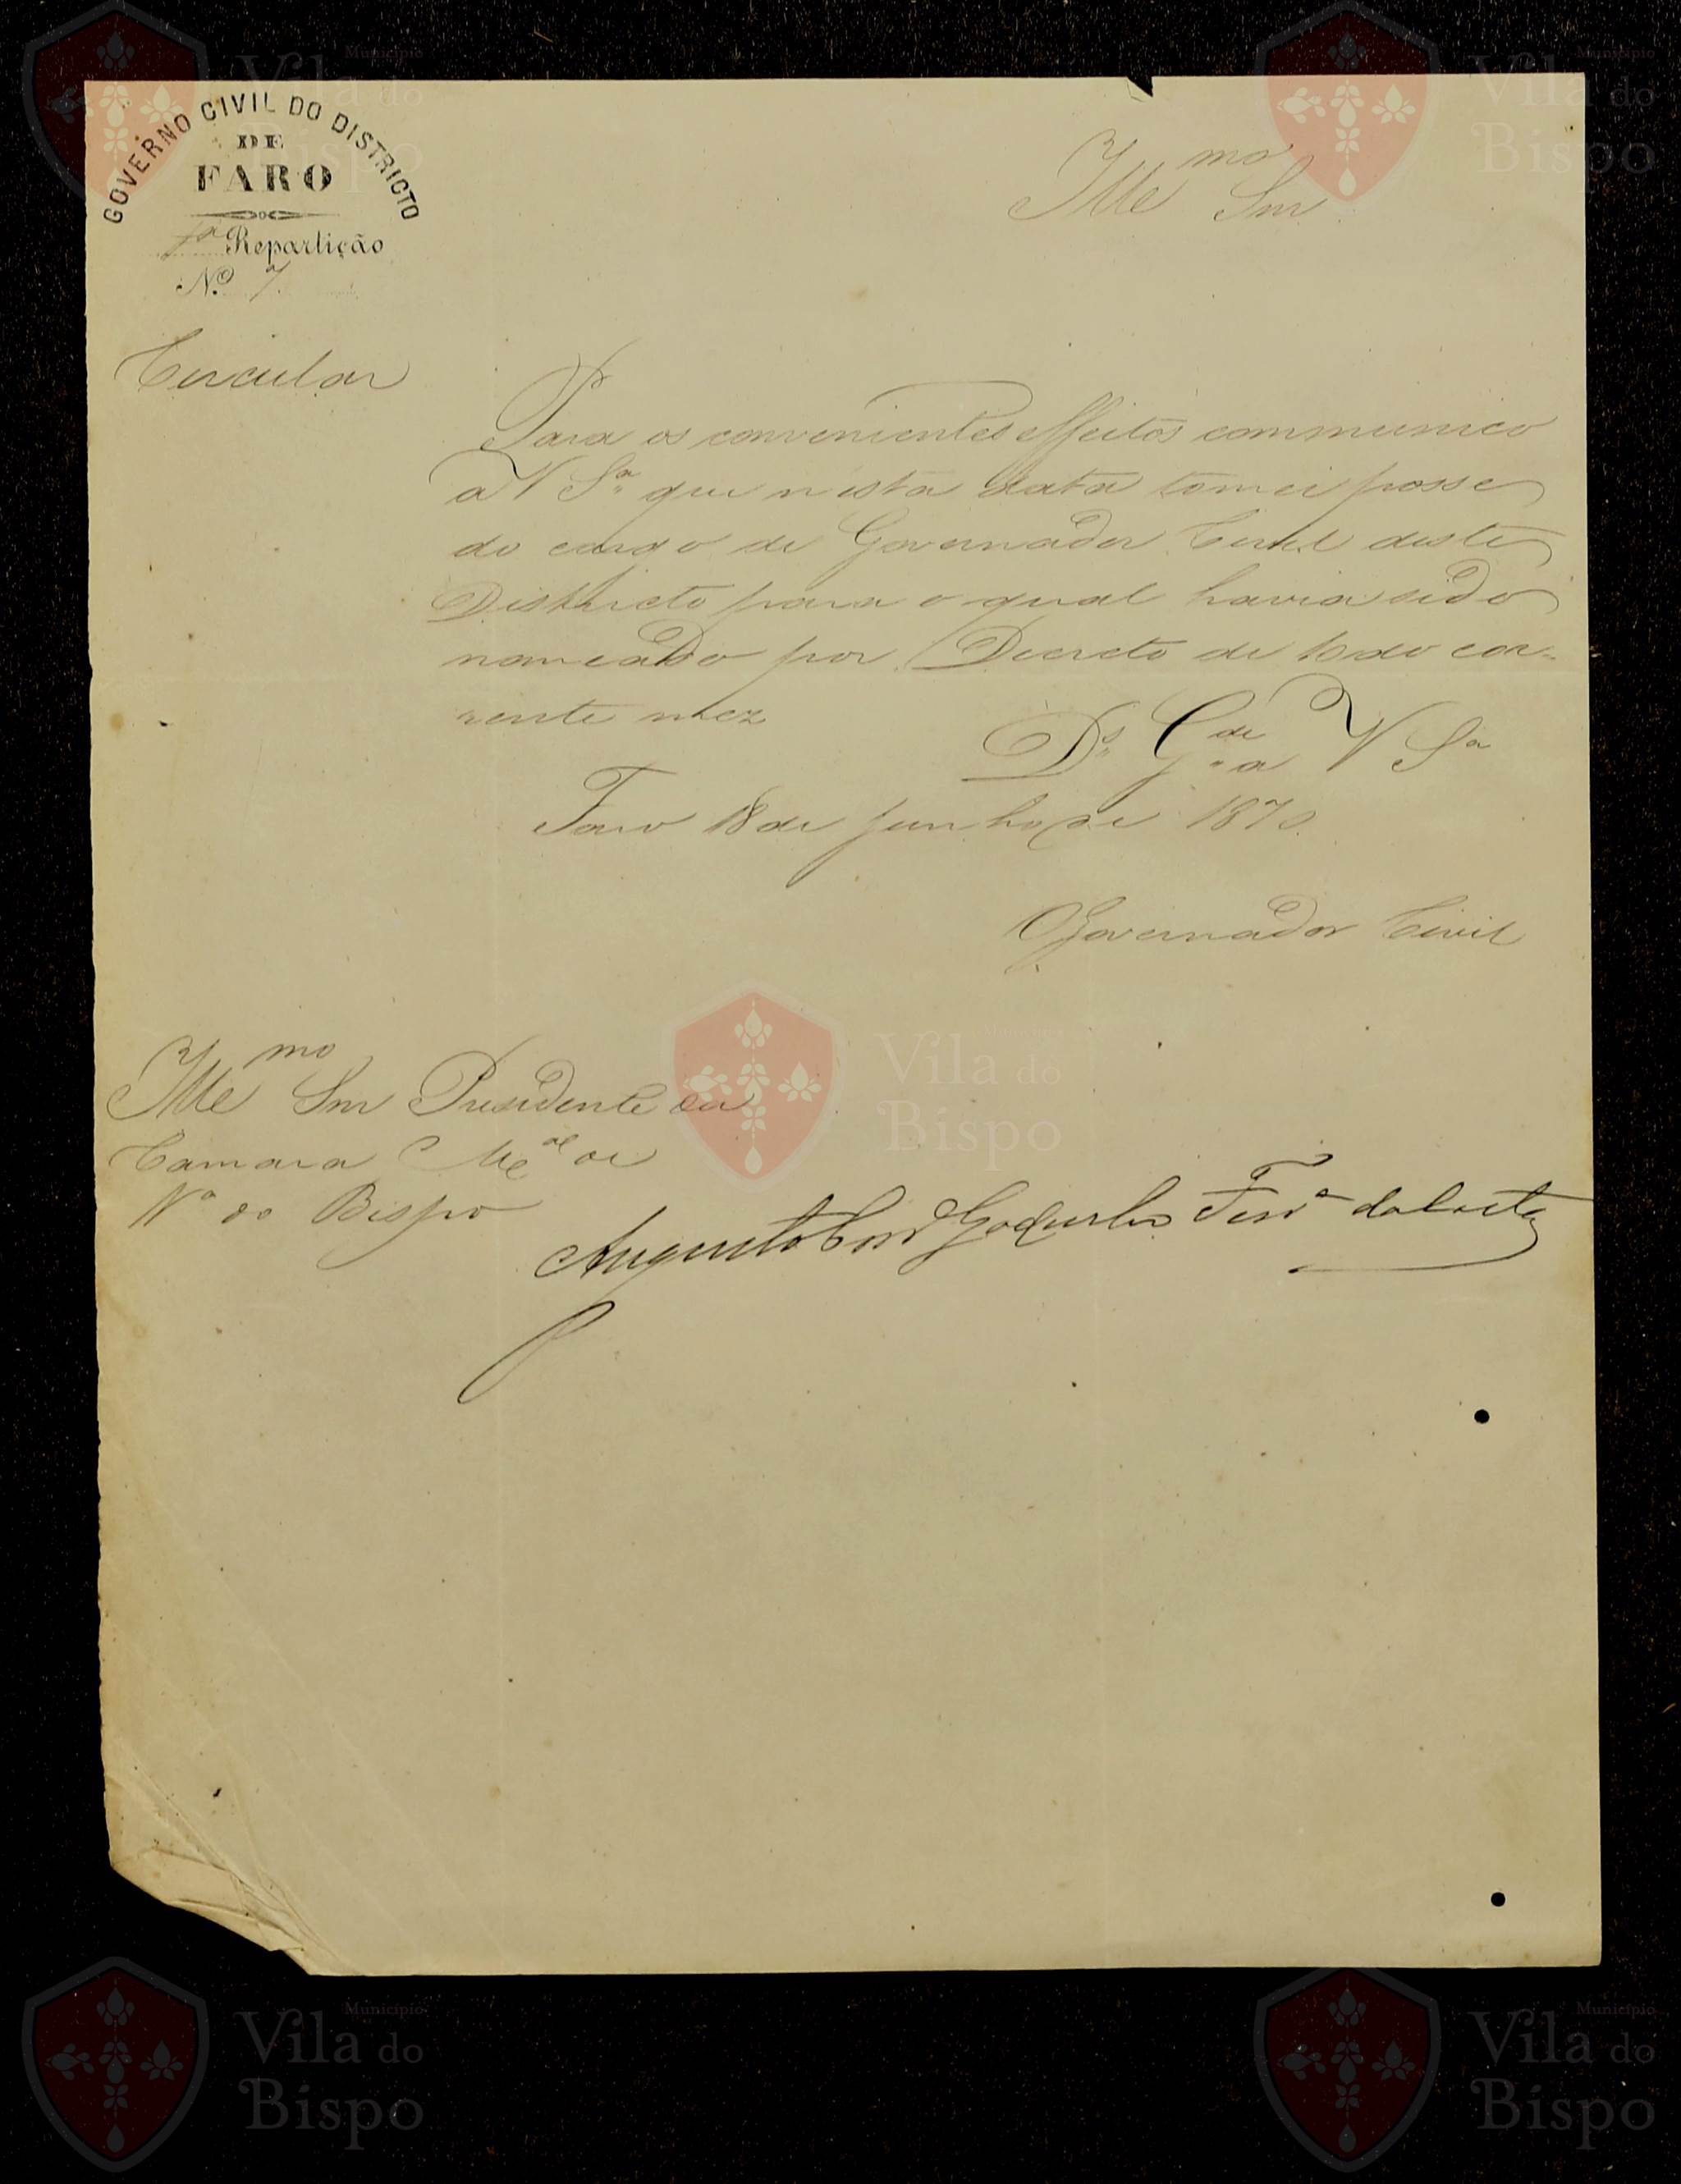 GOVERNO CIVIL DO DISTRICTO
DE
FARO
1ª Repartição
N.º 7
Illmo Snr
Circular
Para os convenientes effeitos communico
a V Sª que n'esta data tomei posse
do cargo de Governador Civil deste
Districto para o qual havia sido
nomeado por Decreto de 10 do cor-
rente mez
Ds Gde a V Sª
Faro 18 de Junho de 1870.
O Governador Civil
Illmo Snr Presidente da
Camara Mcal de
Vª do Bispo
Augusto Cesar Ferª
Município
Vila do
Bispo
Município
Vila do
Bispo
Município
Vila do
Bispo
Município
Vila do
Bispo
Município
Vila do
Bispo